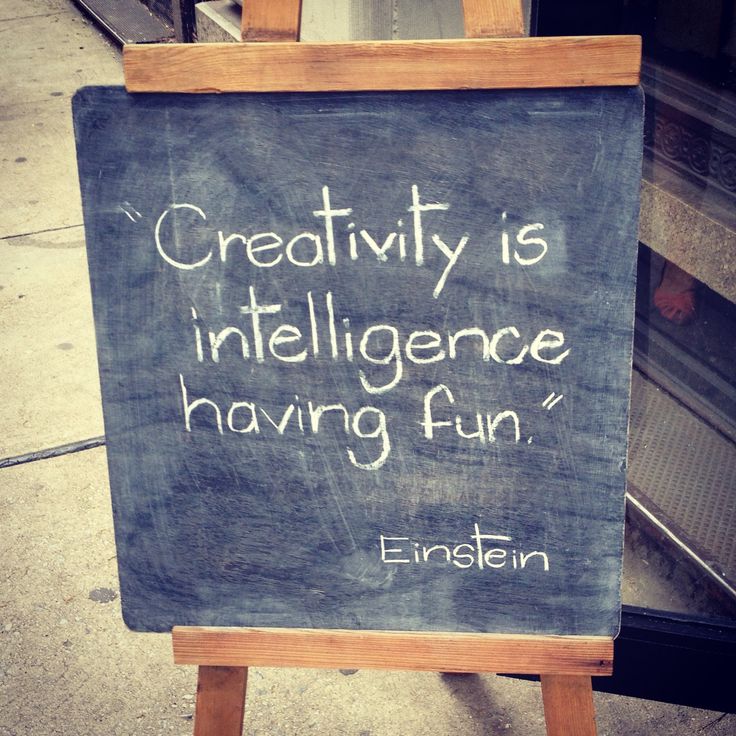 "Creativity is
intelligence
having fun."
Einstein